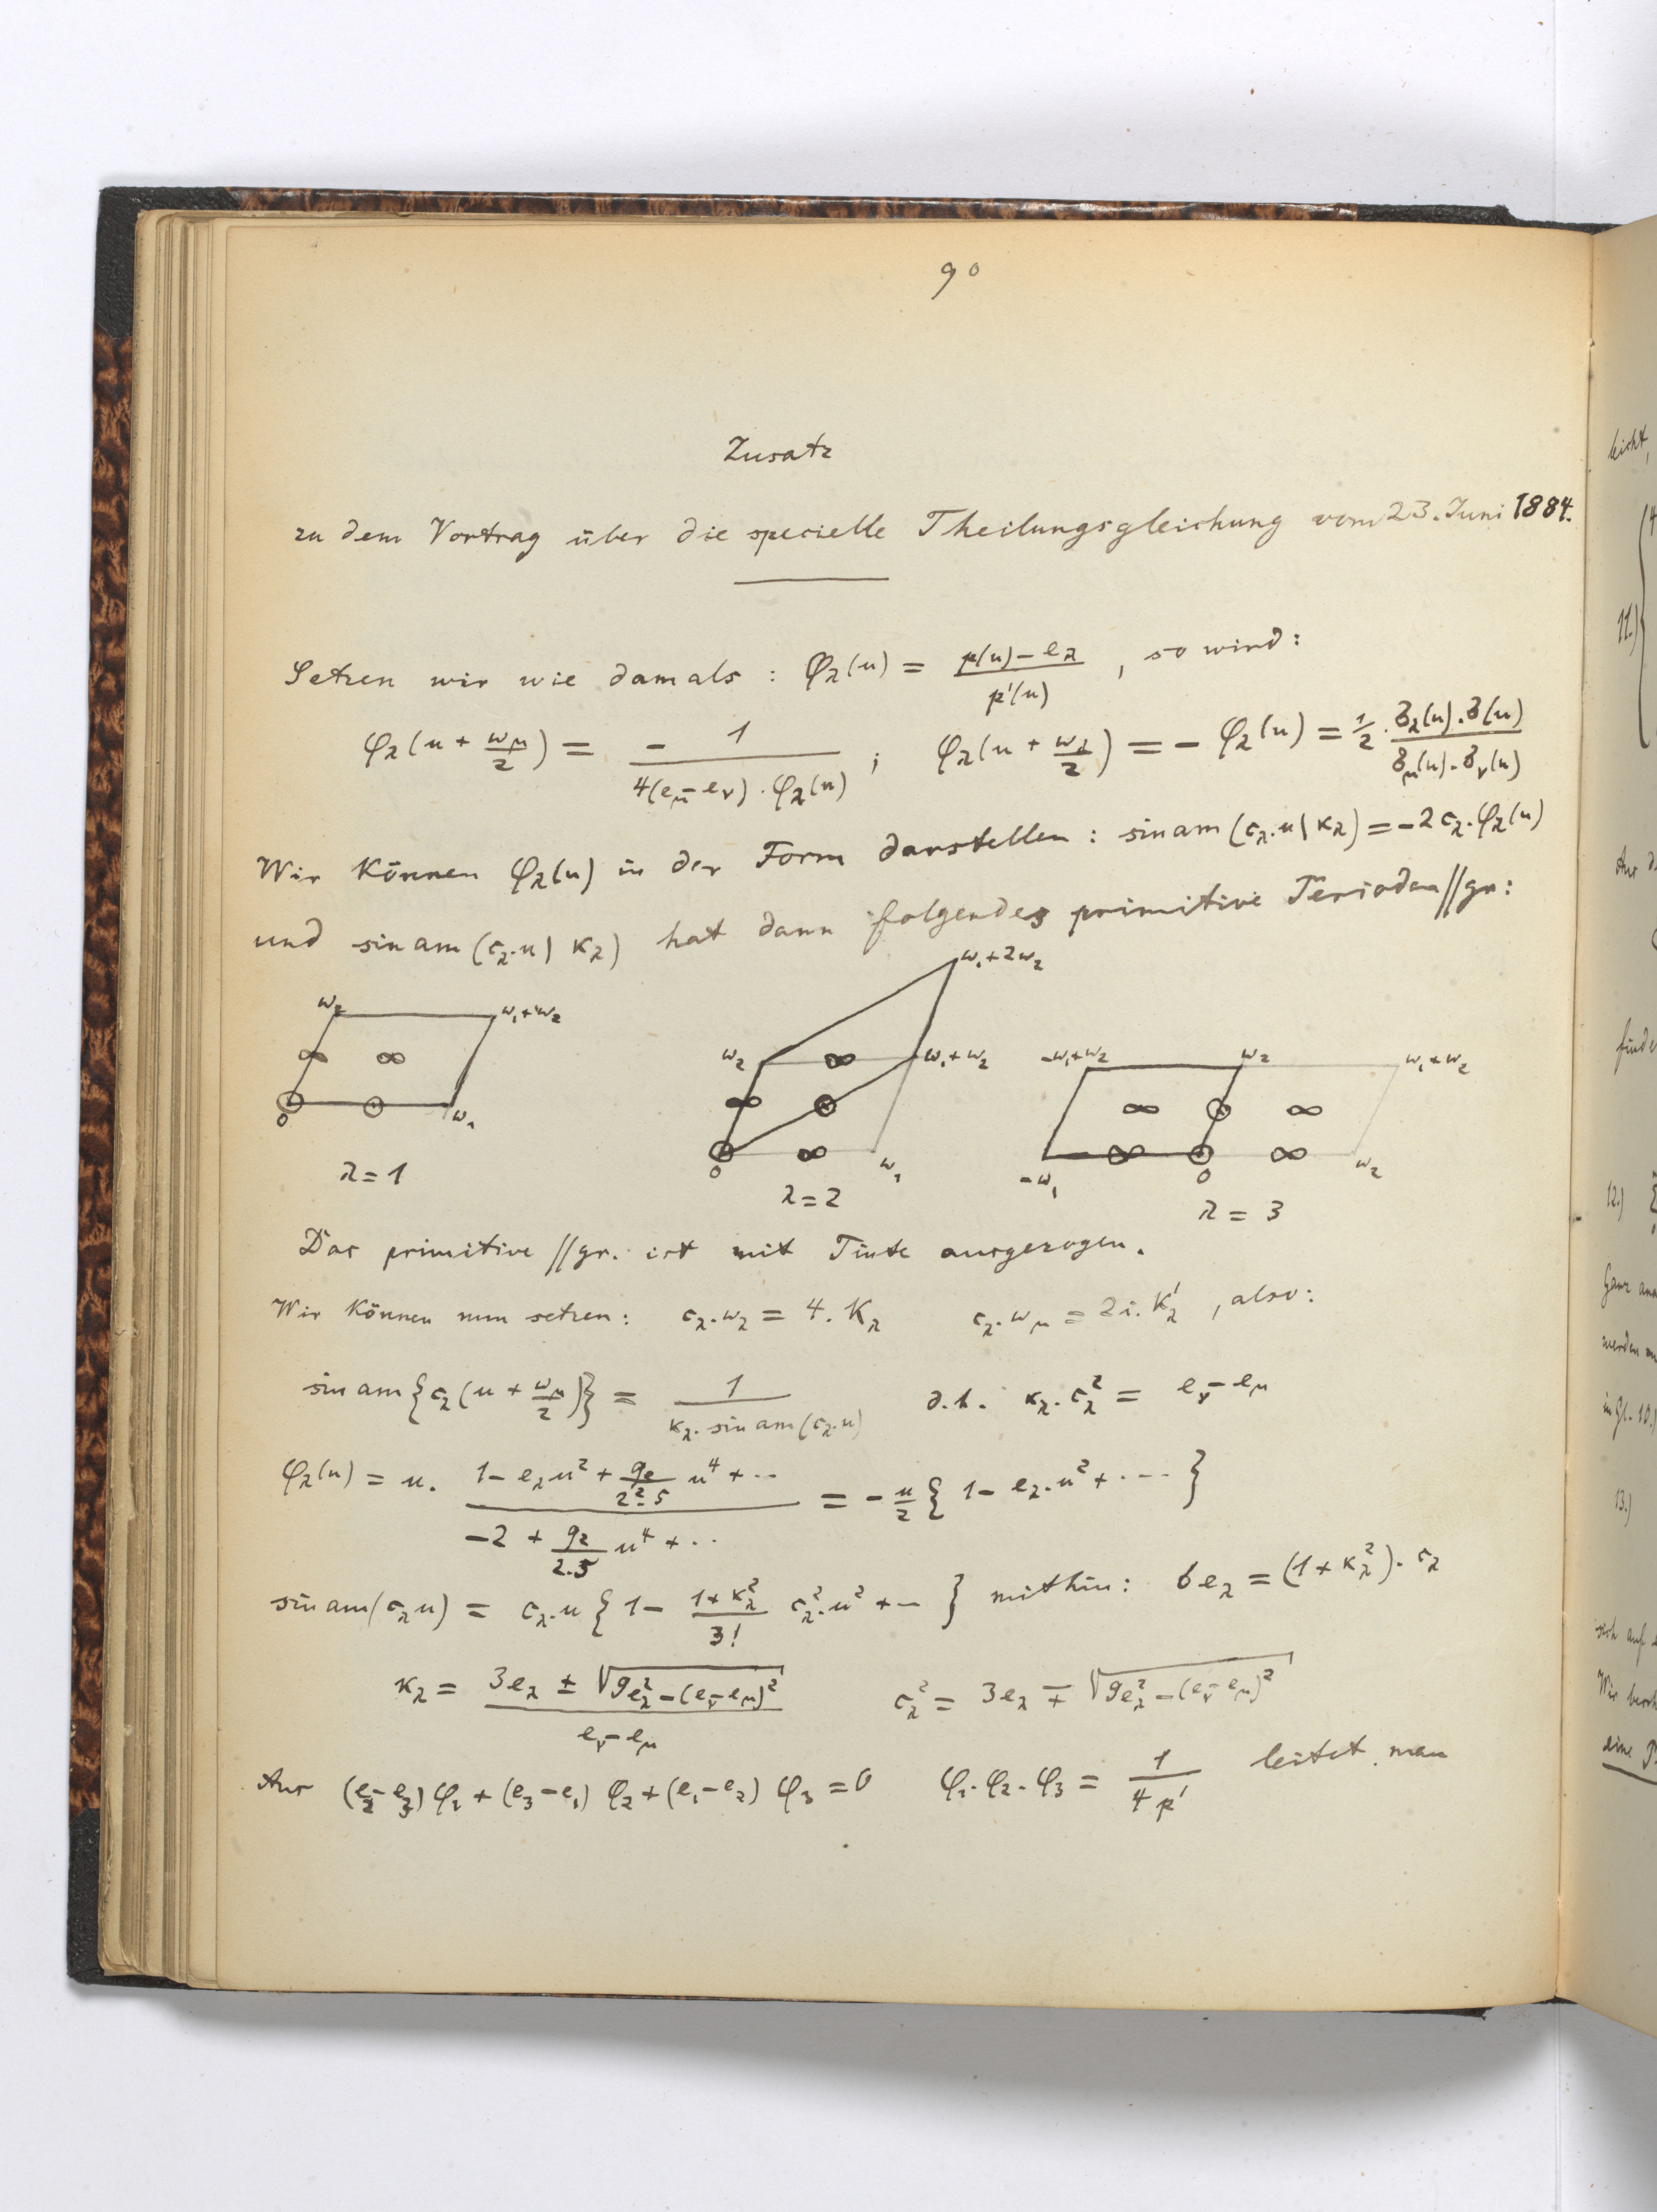 90
Zusatz
zu dem Vortrag über die specielle Theilungsgleichung vom 23. Juni 1884.
Setzen wir wie damals : φ_λ(u) = (p(u) − e_λ)/(p'(u)) , so wird:
φ_λ(u + ω_μ/2) = − 1/(4(e_μ − e_ν) . φ_λ(u)) ; φ_λ(u + ω_λ/2) = − φ_λ(u) = 1/2 . (σ_λ(u) . σ(u))/(σ_μ(u) . σ_ν(u))
Wir Können φ_λ(u) in der Form darstellen : sin am (c_λ . u | κ_λ) = −2 c_λ . φ_λ(u)
und sin am (c_λ . u | κ_λ) hat dann folgendes primitive Perioden//gr:
ω₂ ω₁+ω₂
∞ ∞
0 ω₁
λ = 1
ω₁+2ω₂
ω₂ ∞ ω₁+ω₂
∞
0 ∞ ω₁
λ = 2
−ω₁+ω₂ ω₂ ω₁+ω₂
∞ ∞
−ω₁ ∞ 0 ∞ ω₂
λ = 3
Das primitive //gr. ist mit Tinte ausgezogen.
Wir Können nun setzen: c_λ . ω_λ = 4 . K_λ c_λ . ω_μ = 2i . K'_λ , also:
sin am {c_λ (u + ω_μ/2)} = 1/(κ_λ . sin am (c_λ . u)) d. h. κ_λ . c_λ² = e_ν − e_μ
φ_λ(u) = u . (1 − e_λ u² + g₂/(2² . 5) u⁴ + ··)/(−2 + g₂/(2.5) u⁴ + ··) = − u/2 { 1 − e_λ . u² + ···· }
sin am (c_λ u) = c_λ . u { 1 − (1 + κ_λ²)/3! c_λ² . u² + ·– } mithin: 6 e_λ = (1 + κ_λ²) . c_λ
κ_λ = (3e_λ ± √(9e_λ² − (e_ν − e_μ)²))/(e_ν − e_μ) c_λ² = 3e_λ ∓ √(9e_λ² − (e_ν − e_μ)²)
Aus (e₂ − e₃) φ₁ + (e₃ − e₁) φ₂ + (e₁ − e₂) φ₃ = 0 φ₁ . φ₂ . φ₃ = 1/(4 p') leitet man
leicht,
11.)
12.)
13.)